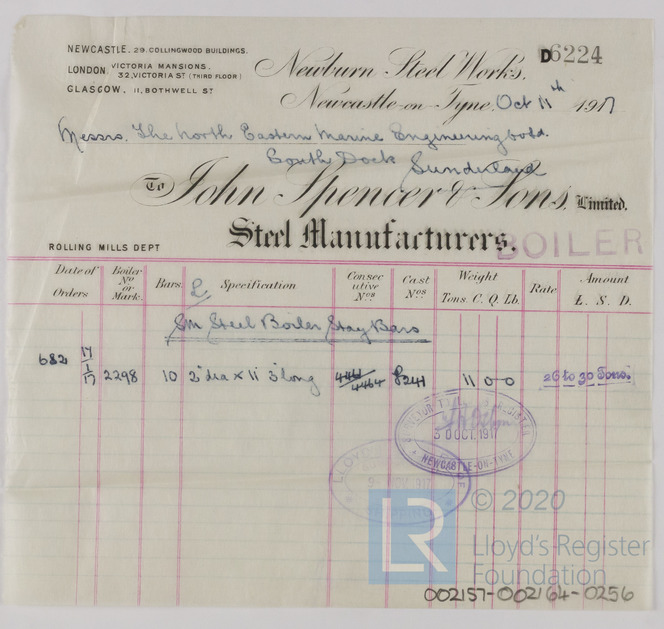 NEWCASTLE. 29. COLLINGWOOD BUILDINGS.
LONDON. VICTORIA MANSIONS.
32, VICTORIA ST (THIRD FLOOR)
GLASGOW. 11, BOTHWELL ST
D6224
Newburn Steel Works.
Newcastle-on-Tyne, Oct 11th 1917
Messrs. The North Eastern Marine Engineering Co Ld.
South Dock Sunderland
To John Spencer & Sons, Limited.
Steel Manufacturers.
BOILER
ROLLING MILLS DEPT
Date of Orders Boiler No or Mark. Bars. Specification Consecutive Nos Cast Nos Weight Tons. C. Q. Lb. Rate Amount £. S. D.
SM Steel Boiler Stay Bars
682 17/1/17 2298 10 2" dia x 11' 3" long 4461/4464 8241 11 0-0 26 to 30 Tons.
30 OCT. 1917
NEWCASTLE-ON-TYNE
LLOYD'S
NOV. 1917
LR
© 2020
Lloyd's Register
Foundation
002157-002164-0256